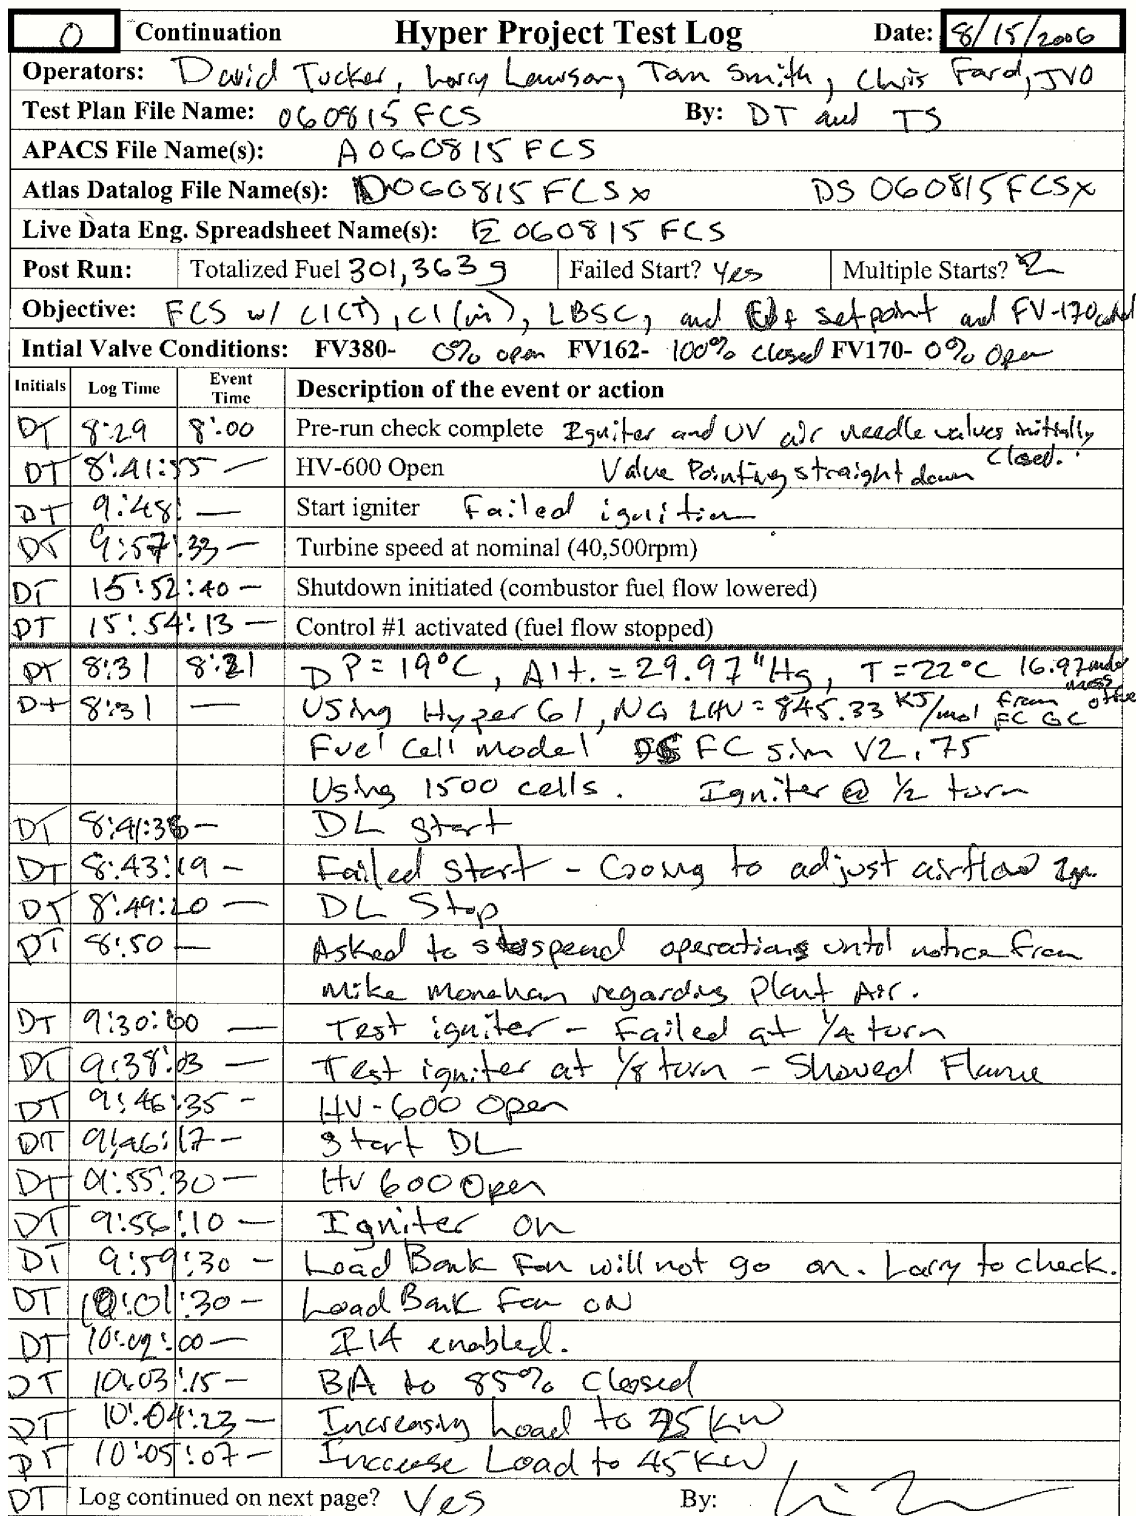 0 Continuation Hyper Project Test Log Date: 8/15/2006
Operators: David Tucker, Larry Lawson, Tom Smith, Chris Ford, JVO
Test Plan File Name: 060815 FCS By: DT and TS
APACS File Name(s): A060815FCS
Atlas Datalog File Name(s): D060815FCSx DS 060815FCSx
Live Data Eng. Spreadsheet Name(s): E060815 FCS
Post Run: Totalized Fuel 301,363 g Failed Start? Yes Multiple Starts? 2
Objective: FCS w/ C1(T), C1(m), LBSC, and setpoint and FV-170
Intial Valve Conditions: FV380- 0% open FV162- 100% closed FV170- 0% Open
Initials Log Time Event Time Description of the event or action
DT 8:29 8:00 Pre-run check complete Igniter and UV air needle valves initially closed.
DT 8:41:55 — HV-600 Open Valve Pointing straight down
DT 9:48: — Start igniter Failed ignition
DT 9:57:33 — Turbine speed at nominal (40,500rpm)
DT 15:52:40 — Shutdown initiated (combustor fuel flow lowered)
DT 15:54:13 — Control #1 activated (fuel flow stopped)
DT 8:31 8:21 DP = 19°C, Alt. = 29.97 "Hg, T = 22°C 16.97
DT 8:31 — Using Hyper 61, NG LHV = 845.33 KJ/mol from FC GC office
Fuel Cell model FC sim V2.75
Using 1500 cells. Igniter @ 1/2 turn
DT 8:41:38 — DL start
DT 8:43:19 — Failed Start - Going to adjust airflow Ign
DT 8:49:20 — DL Stop
DT 8:50 — Asked to suspend operations until notice from
Mike Monahan regarding Plant Air.
DT 9:30:00 — Test igniter - Failed at 1/4 turn
DT 9:38:03 — Test igniter at 1/8 turn - Showed Flame
DT 9:46:35 - HV-600 Open
DT 9:46:17 - Start DL
DT 9:55:30 — HV 600 Open
DT 9:56:10 — Igniter on
DT 9:59:30 — Load Bank Fan will not go on. Larry to check.
DT 10:01:30 — Load Bank Fan ON
DT 10:02:00 — I14 enabled.
DT 10:03:15 — BA to 85% closed
DT 10:04:23 — Increasing Load to 25 kW
DT 10:05:07 — Increase Load to 45 KW
DT Log continued on next page? Yes By: